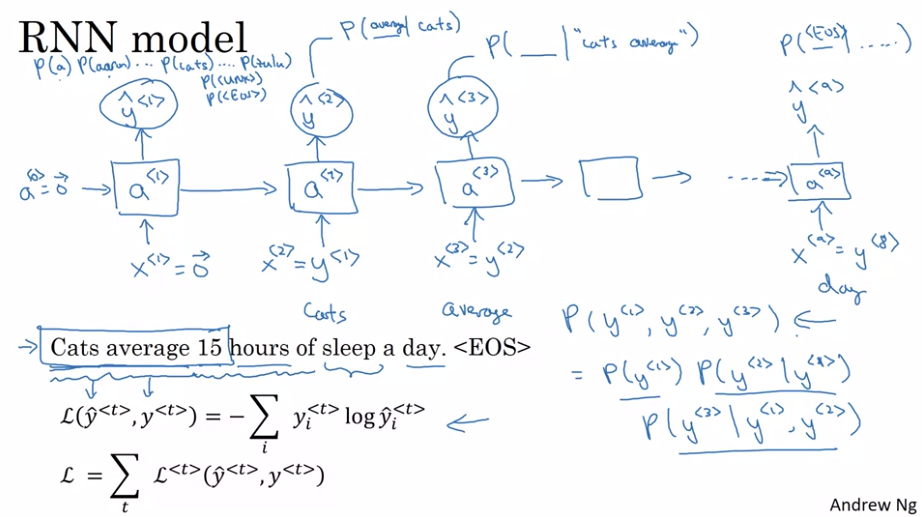 RNN model
P(a) P(aaron) ... P(cats) ... P(zulu)
P(<UNK>)
P(<EOS>)
P(average | cats)
P(__ | "cats average")
P(<EOS> | .....)
ŷ<1> ŷ<2> ŷ<3> ŷ<9>
a<0>=0⃗ a<1> a<2> a<3> ... a<9>
x<1>=0⃗ x<2>=y<1> x<3>=y<2> x<9>=y<8>
Cats average day
Cats average 15 hours of sleep a day. <EOS>
P(y<1>, y<2>, y<3>)
= P(y<1>) P(y<2>|y<1>)
P(y<3>|y<1>, y<2>)
ℒ(ŷ<t>, y<t>) = −∑i yi<t> log ŷi<t>
ℒ = ∑t ℒ<t>(ŷ<t>, y<t>)
Andrew Ng